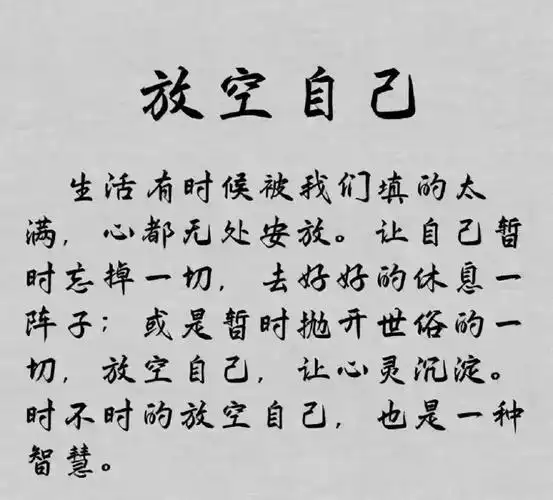 放空自己
生活有时候被我们填的太
满，心都无处安放。让自己暂
时忘掉一切，去好好的休息一
阵子；或是暂时抛开世俗的一
切，放空自己，让心灵沉淀。
时不时的放空自己，也是一种
智慧。